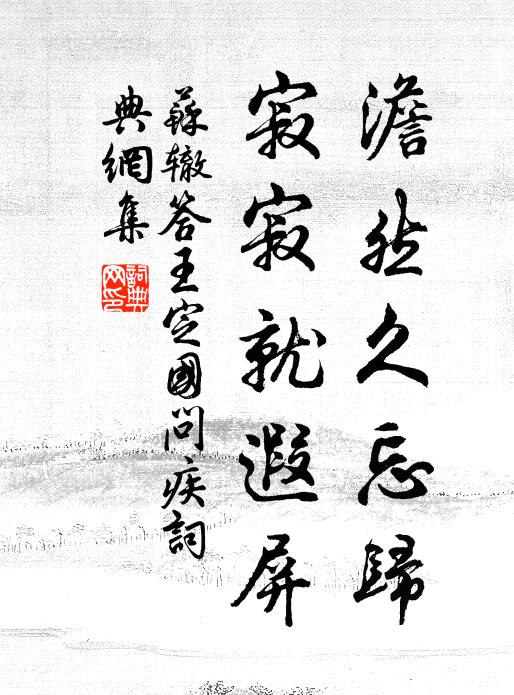 澹然久忘歸
寂寂就遐屏
蘇辙答王定國問疾詞
典網集
詞典
网印